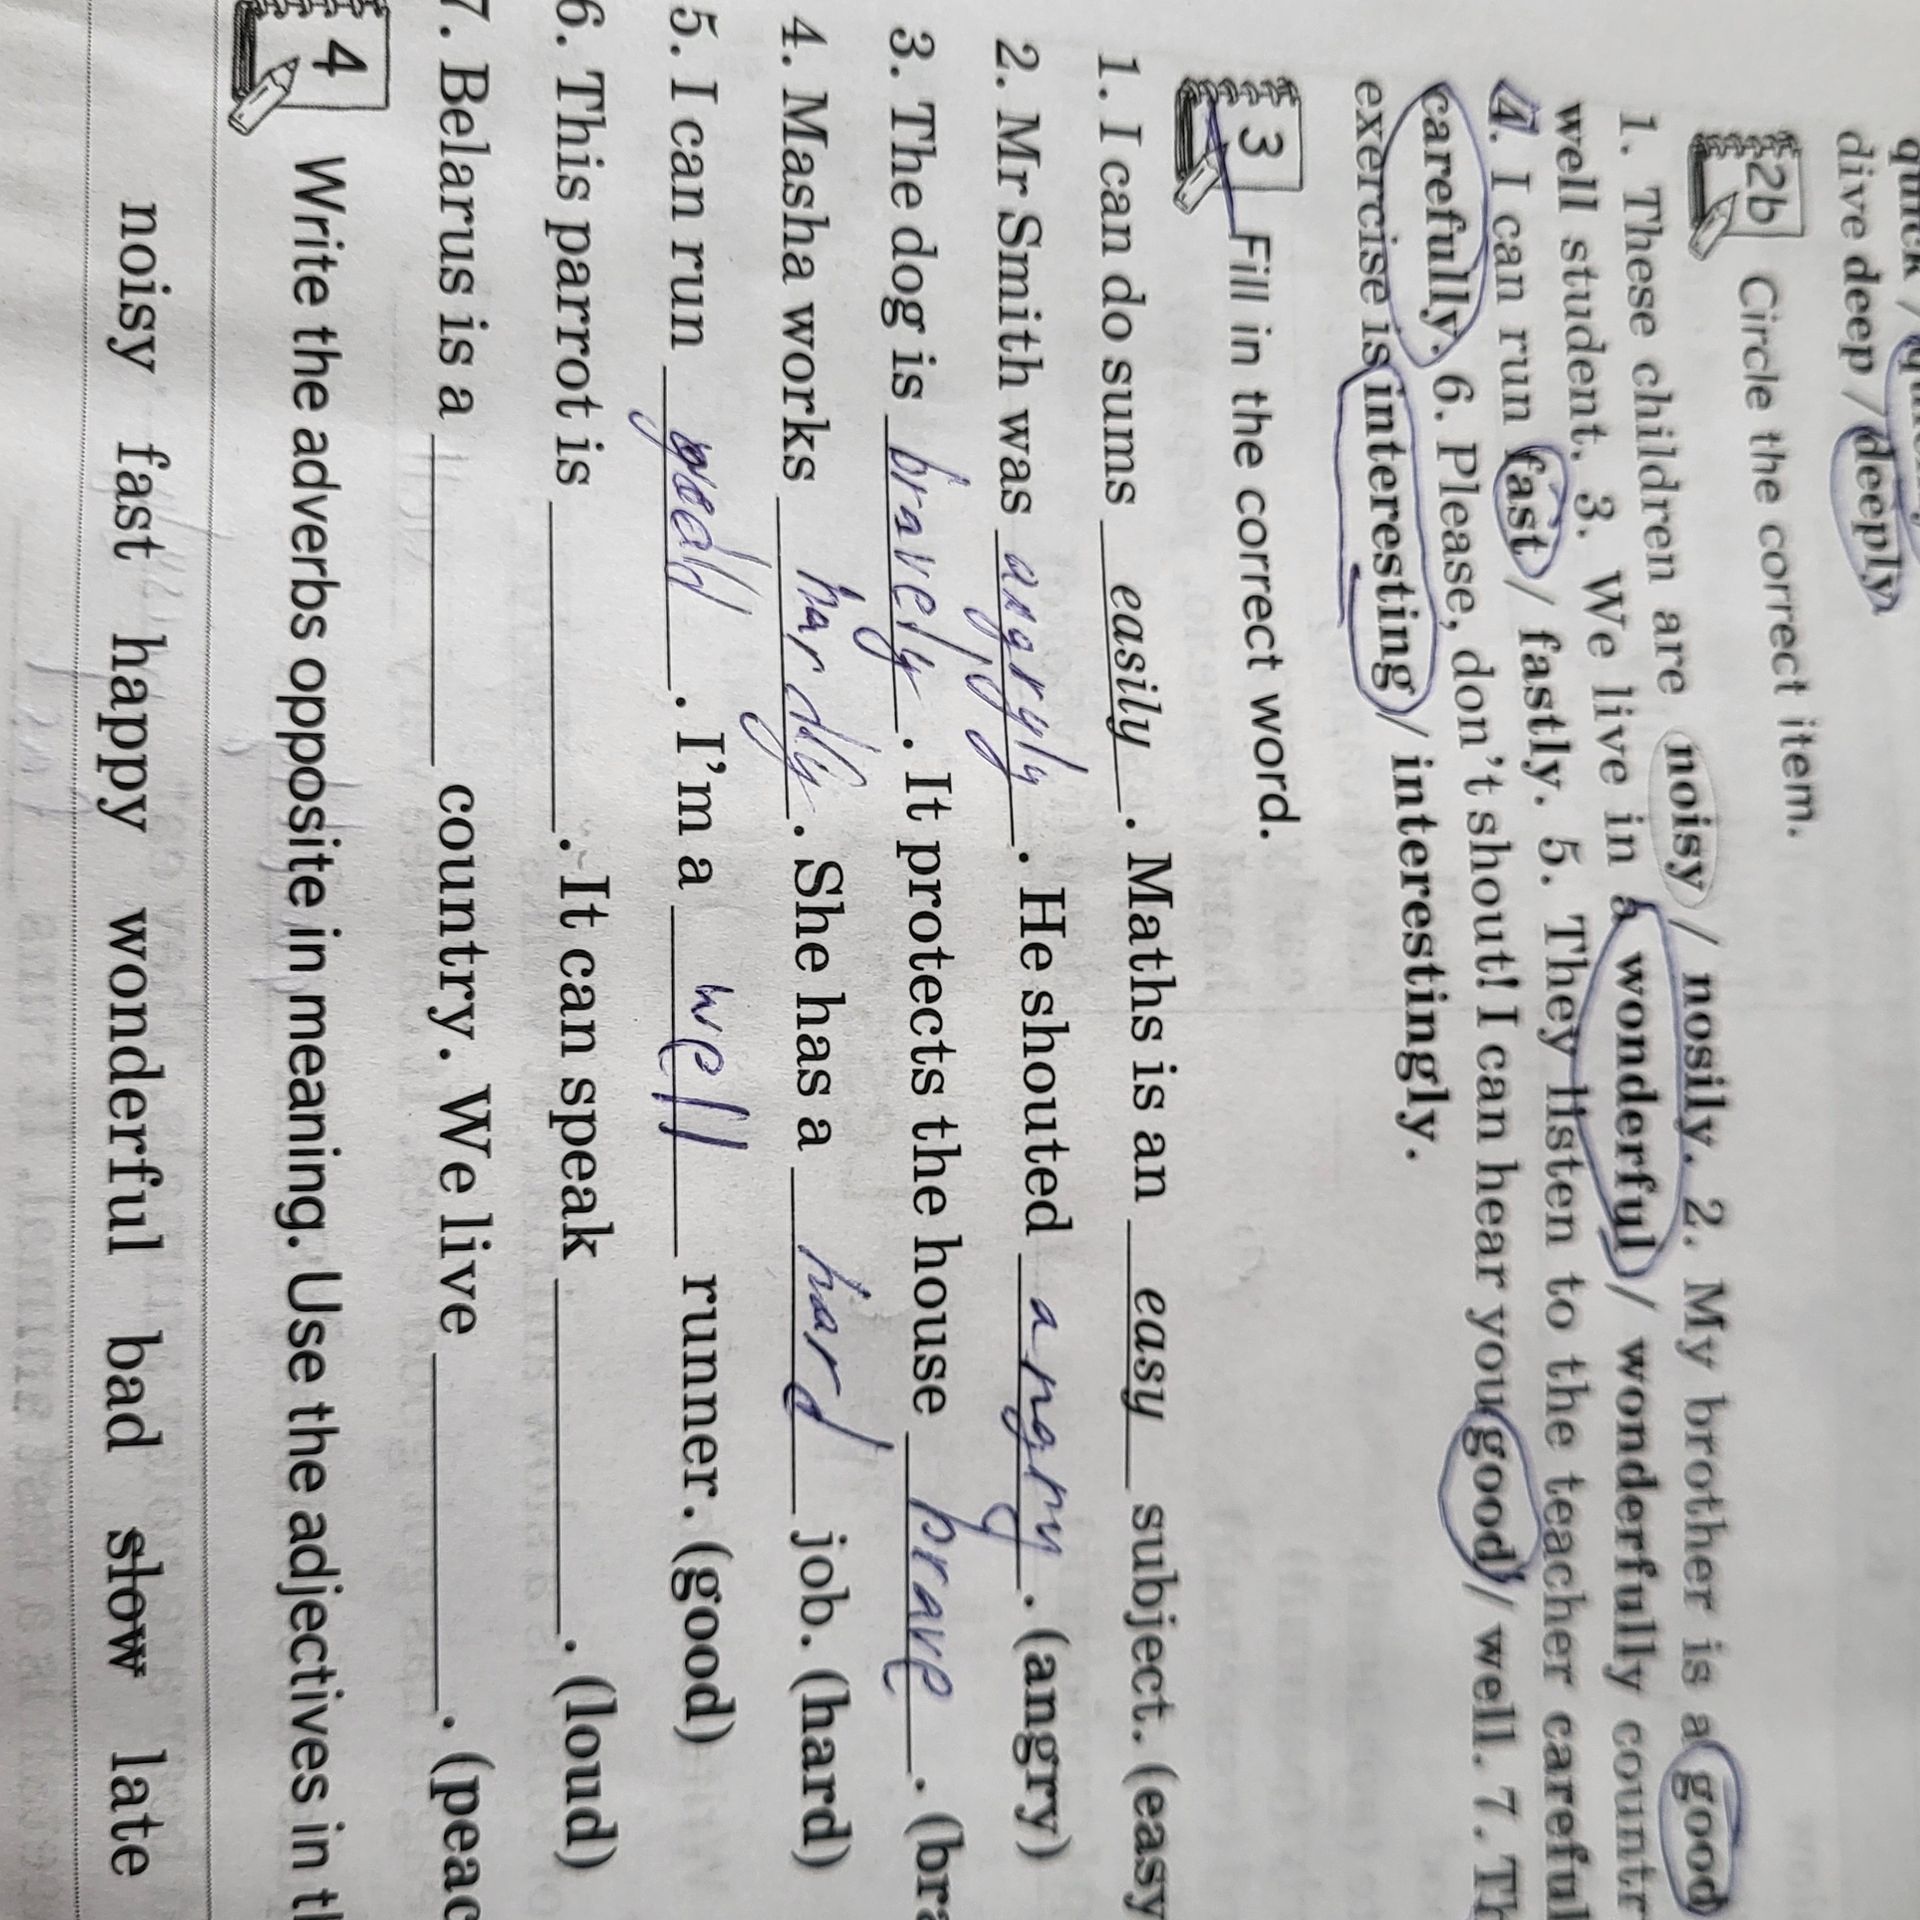 dive deep / deeply
2b Circle the correct item.
1. These children are noisy / nosily. 2. My brother is a good
well student. 3. We live in a wonderful / wonderfully countr
4. I can run fast / fastly. 5. They listen to the teacher careful
carefully. 6. Please, don't shout! I can hear you good / well. 7. Th
exercise is interesting / interestingly.
3 Fill in the correct word.
1. I can do sums easily. Maths is an easy subject. (easy
2. Mr Smith was angryly. He shouted angry. (angry)
3. The dog is bravely. It protects the house brave. (bra
4. Masha works hardly. She has a hard job. (hard)
5. I can run good. I'm a well runner. (good)
6. This parrot is ____. It can speak ____. (loud)
7. Belarus is a ____ country. We live ____. (peac
4 Write the adverbs opposite in meaning. Use the adjectives in th
noisy fast happy wonderful bad slow late